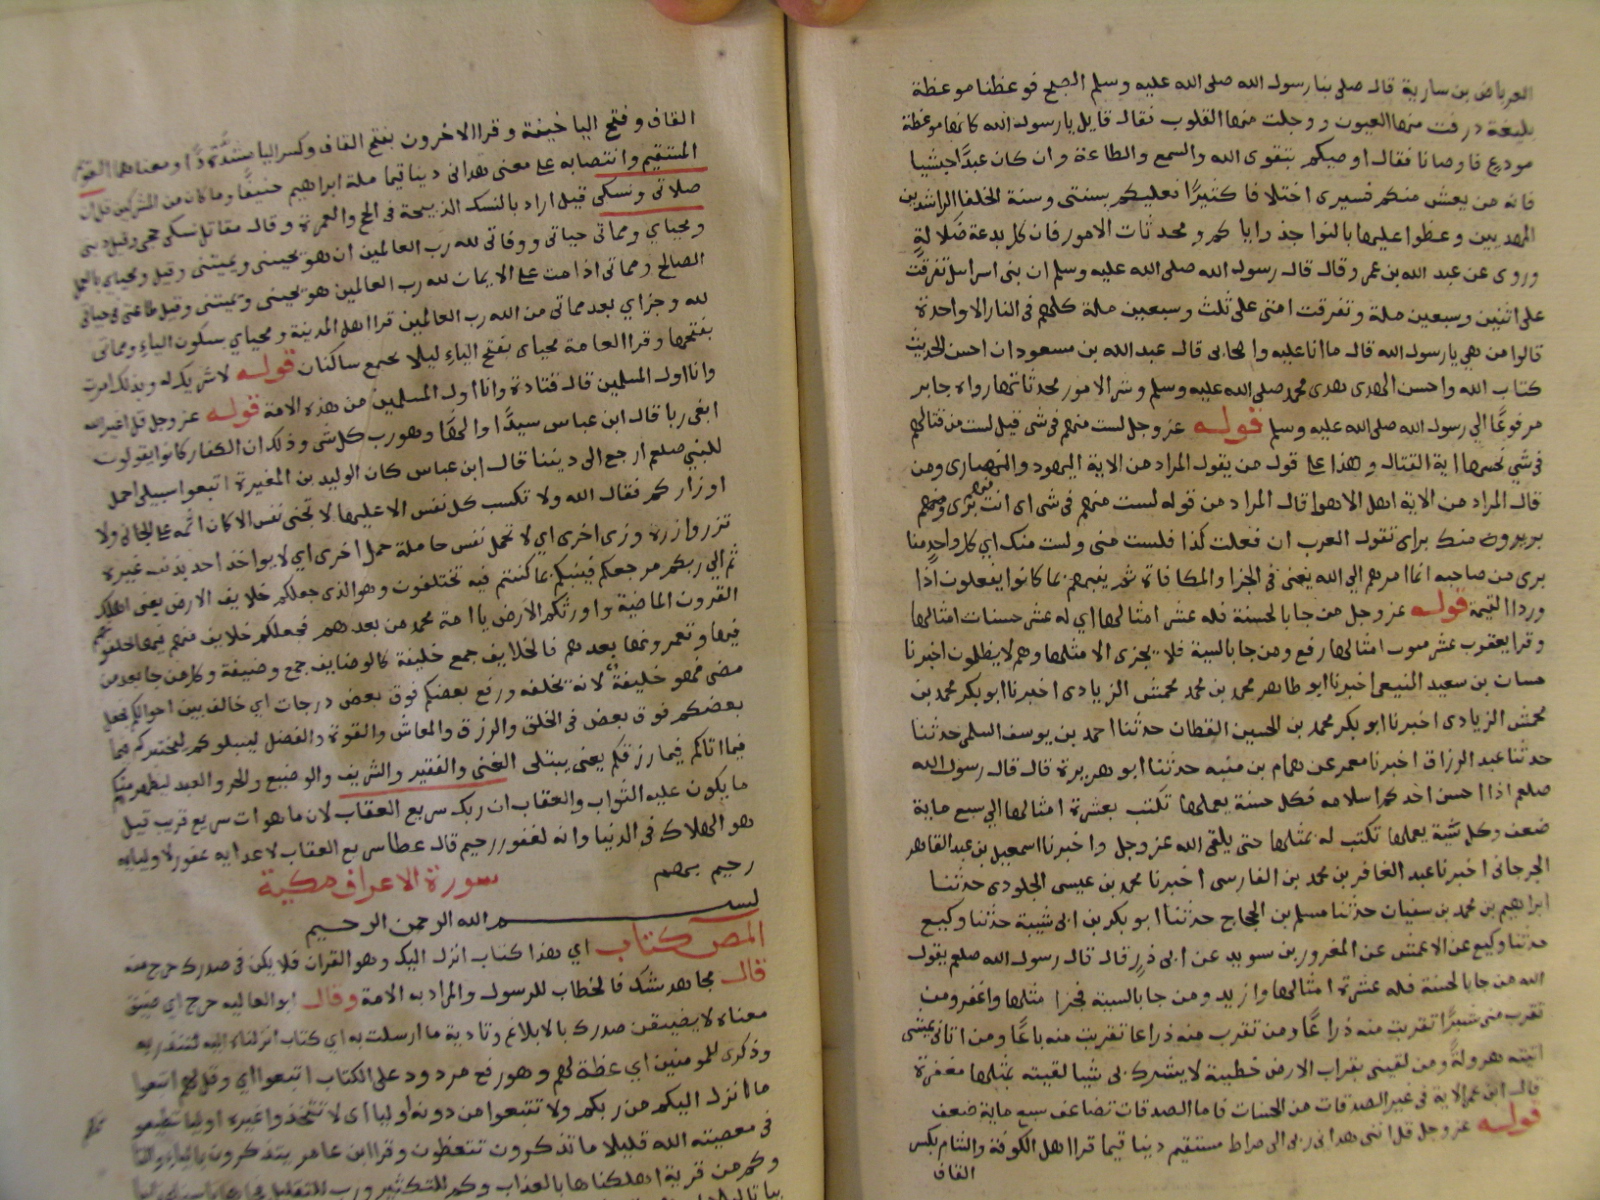 العرباض بن سارية قال صلى بنا رسول الله صلى الله عليه وسلم الصبح فوعظنا موعظة
بليغة ذرفت منها العيون ووجلت منها القلوب فقال قايل يا رسول الله كانها موعظة
مودع فاوصنا فقال اوصيكم بتقوى الله والسمع والطاعة وان كان عبدًا حبشيا
فانه من يعش منكم فسيرى اختلافا كثيرًا فعليكم بسنتى وسنة الخلفا الراشدين
المهديين وعظوا عليها بالنواجذ واياكم ومحدثات الامور فان كل بدعة ضلالة
وروى عن عبد الله بن عمر وقال قال رسول الله صلى الله عليه وسلم ان بنى اسرايل تفرقت
على اثنين وسبعين ملة وتفرقت امتى على ثلث وسبعين ملة كلهم فى النار الا واحدة
قالوا من هي يا رسول الله قال ما انا عليه واصحابى قال عبد الله بن مسعود ان احسن الحديث
كتاب الله واحسن الهدى هدى محمد صلى الله عليه وسلم وشر الامور محدثاتها رواه جابر
مرفوعًا الى رسول الله صلى الله عليه وسلم قوله عز وجل لست منهم فى شى قيل لست من قتالهم
فى شي نسختها اية القتال وهذا على قول من يقول المراد من الاية اليهود والنصارى ومن
قال المراد من الاية اهل الاهوا قال المراد من قوله لست منهم فى شى اى انت منهم برى وهم
بريون منك براى تقول العرب ان فعلت كذا فلست منى ولست منك اي كل واحد منا
برى من صاحبه انما امرهم الى الله يعنى فى الجزا والمكافاة ثم ينبيهم بما كانوا يفعلون اذا
وردا القيمة قوله عز وجل من جا بالحسنة فله عشر امثالها اي له عشر حسنات امثالها
وقرا يعقوب عشر منون امثالها رفع ومن جا بالسية فلا يجزى الا مثلها وهم لا يظلمون اخبرنا
حسان بن سعيد المنيعى اخبرنا ابو طاهر محمد بن محمد محمش الزيادى اخبرنا ابو بكر محمد بن
محمش الزيادى اخبرنا ابو بكر محمد بن الحسين القطان حدثنا احمد بن يوسف السلمى حدثنا
حدثنا عبد الرزاق اخبرنا معمر عن همام بن منبه حدثنا ابو هريرة قال قال رسول الله
صلعم اذا احسن احدكم اسلامه فكل حسنة يعملها تكتب بعشرة امثالها الى سبع ماية
ضعف وكل سية يعملها تكتب له بمثلها حتى يلقى الله عز وجل واخبرنا اسمعيل بن عبد القاهر
الجرجانى اخبرنا عبد الغافر بن محمد بن الفارسى اخبرنا محمد بن عيسى الجلودى حدثنا
ابراهيم بن محمد بن سفيان حدثنا مسلم بن الحجاج حدثنا ابو بكر بن ابى شيبة حدثنا وكيع
حدثنا وكيع عن الاعمش عن المعرور بن سويد عن ابى ذر قال قال رسول الله صلعم يقول
الله من جا بالحسنة فله عشرة امثالها وازيد ومن جا بالسية فجزا مثلها واغفر ومن
تقرب منى شبرًا تقربت منه ذراعًا ومن تقرب منه ذراعا تقربت منه باعًا ومن اتانى يمشى
اتيته هرولة ومن لقينى بقراب الارض خطيية لا يشرك بى شيا لقيته بمثلها مغفرة
قال ابن عمر الاية فى غير الصدقات من الحسنات فاما الصدقات تضاعف سبع ماية ضعف
قوله عز وجل قل اننى هدانى ربى الى صراط مستقيم دينا قيما قرا اهل الكوفة والشام بكسر
القاف
القاف وفتح اليا خفيفة وقرا الاخرون بفتح القاف وكسر اليا مشددًا ومعناهما القويم
المستقيم وانتصابه على معنى هدانى دينا قيما ملة ابراهيم حنيفًا وما كان من المشركين قل ان
صلاتى ونسكى قيل اراد بالنسك الذبيحة فى الحج والعمرة وقال مقاتل نسكى حجى وقيل دينى
ومحياي ومماتى حياتى ووفاتى لله رب العالمين ان هو يحيينى ويميتنى وقيل ومحياي بالعمل
الصالح ومماتى اذا مت على الايمان لله رب العالمين هو يحيينى ويميتنى وقيل طاعتى فى حياتى
لله وجزاي بعد مماتى من الله رب العالمين قرا اهل المدينة ومحياي سكون الياء ومماتى
بفتحها وقرا العامة محياى بفتح الياء ليلا يجمع ساكنان قوله لا شريك له وبذلك امرت
وانا اول المسلمين قال قتادة وانا اول المسلمين من هذه الامة قوله عز وجل قل اغير الله
ابغى ربا قال ابن عباس سيدًا والهًا وهو رب كل شى وذلك ان الكفار كانوا يقولون
للنبى صلعم ارجع الى ديننا قال ابن عباس كان الوليد بن المغيرة اتبعوا سبيلى احمل
اوزاركم فقال الله ولا تكسب كل نفس الا عليها لا تجنى نفس الا كان اثمه على الجانى ولا
تزر وازرة وزر اخرى اي لا تحمل نفس حاملة حمل اخرى اي لا يواخذ احد بذنب غيره
ثم الى ربكم مرجعكم فينبيكم بما كنتم فيه تختلفون وهو الذى جعلكم خلايف الارض يعنى اهلك
القرون الماضية واورثكم الارض يا امة محمد من بعدهم فجعلكم خلايف منهم فيها تخلفونهم
فيها وتعمرونها بعدهم فالخلايف جمع خليفة كالوضايف جمع وضيفة وكل من جا بعد من
مضى فهو خليفة لانه يخلفه ورفع بعضكم فوق بعض درجات اي خالف بين احوالكم فجعل
بعضكم فوق بعض فى الخلق والرزق والمعاش والقوة والفضل ليبلوكم ليختبركم فيما
فيما اتاكم فيما رزقكم يعنى يبتلى الغنى والفقير والشريف والوضيع والحر والعبد ليظهر منكم
ما يكون عليه الثواب والعقاب ان ربك سريع العقاب لان ما هو ات سريع قريب قيل
هو الهلاك فى الدنيا وانه لغفور رحيم قال عطا سريع العقاب لاعدايه غفور لاوليايه
رحيم بهم
سورة الاعراف مكية
بسم الله الرحمن الرحيم
المص كتاب اي هذا كتاب انزل اليك وهو القران فلا يكن فى صدرك حرج منه
قال مجاهد شك فالخطاب للرسول والمراد به الامة وقال ابو العاليه حرج اي ضيق
معناه لا يضيقن صدرك بالابلاغ وتادية ما ارسلت به اي كتاب انزلناه اليه لتنذر به
وذكرى للمومنين اي عظة لهم وهو رفع مردود على الكتاب اتبعوا اي وقل لهم اتبعوا
ما انزل اليكم من ربكم ولا تتبعوا من دونه اوليا اى لا تتخذوا غيره اوليا تطيعو
فى معصيته الله قليلا ما تذكرون تتعظون وقرا ابن عامر يتذكرون بالياء والتا
وكم من قرية اهلكناها بالعذاب وكم للتكثير ورب للتقليل